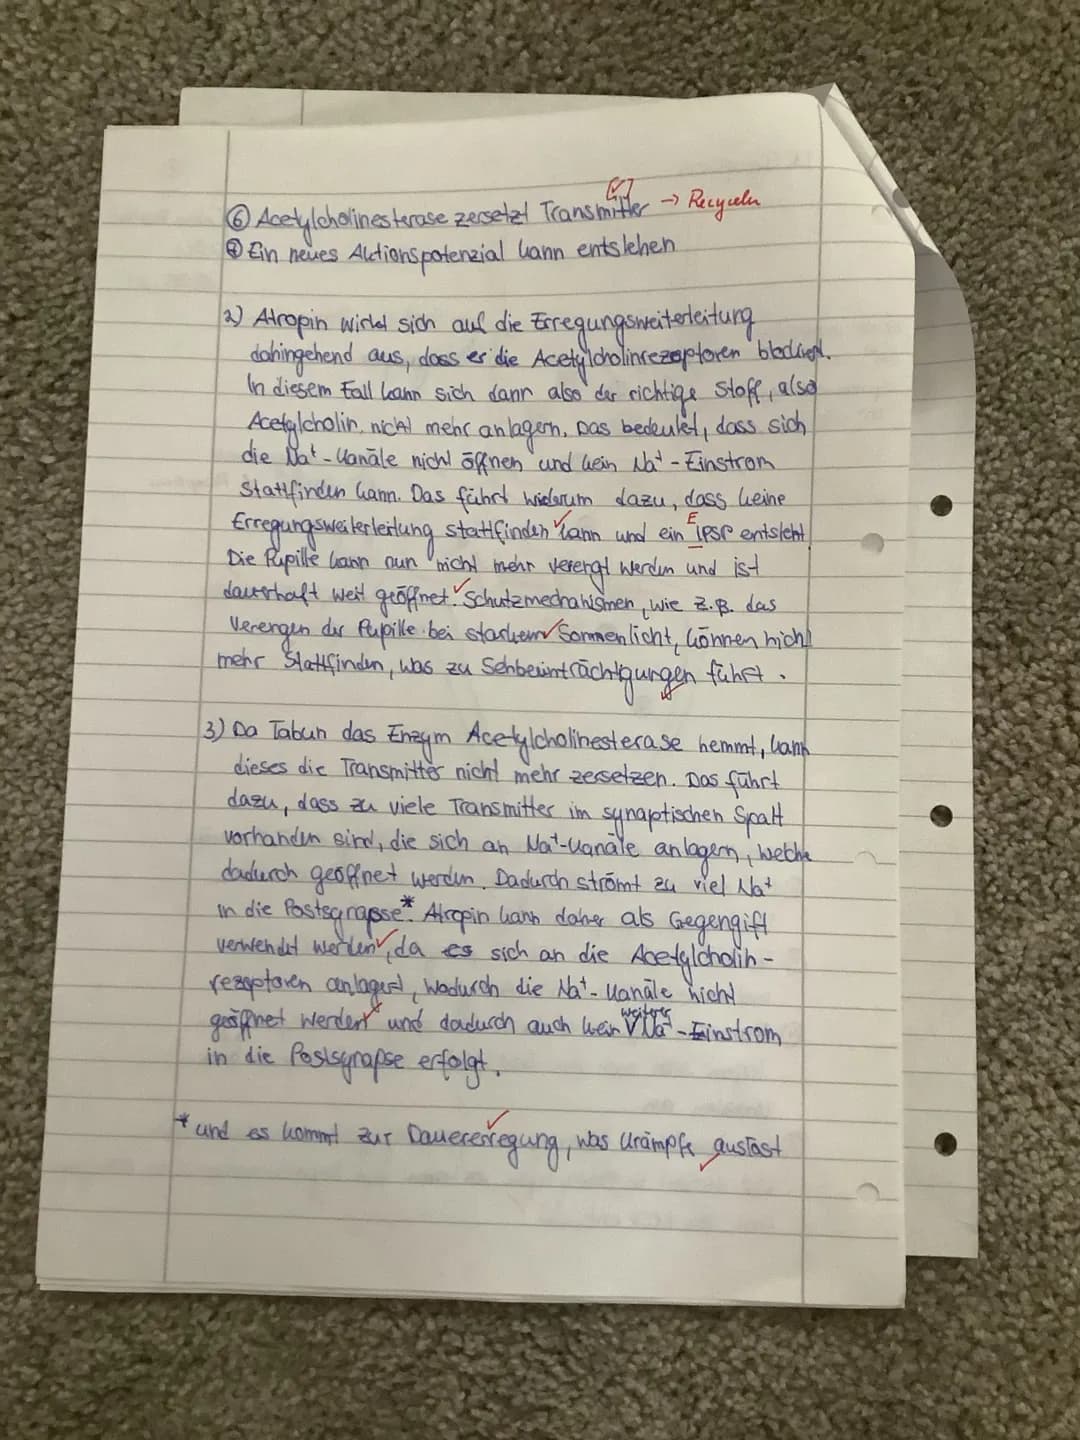 ⑥ Acetylcholinesterase zersetzt Transmitter → Recyceln
⑦ Ein neues Aktionspotenzial kann entstehen
2) Atropin wirkt sich auf die Erregungsweiterleitung
dahingehend aus, dass er die Acetylcholinrezeptoren blockiert.
In diesem Fall kann sich dann also der richtige Stoff, also
Acetylcholin, nicht mehr anlagern. Das bedeutet, dass sich
die Na⁺-Kanäle nicht öffnen und kein Na⁺-Einstrom
Stattfinden kann. Das führt widerum dazu, dass keine
Erregungsweiterleitung stattfinden kann und ein IPSP entsteht
E
Die Pupille kann nun nicht mehr verengt werden und ist
dauerhaft weit geöffnet. Schutzmechanismen, wie z.B. das
Verengen der Pupille bei starkem Sonnenlicht, können nicht
mehr Stattfinden, was zu Sehbeeinträchtigungen führt.
3) Da Tabun das Enzym Acetylcholinesterase hemmt, kann
dieses die Transmitter nicht mehr zersetzen. Das führt
dazu, dass zu viele Transmitter im synaptischen Spalt
vorhanden sind, die sich an Na⁺-Kanäle anlagern, welche
dadurch geöffnet werden. Dadurch strömt zu viel Na⁺
in die Postsynapse*. Atropin kann daher als Gegengift
verwendet werden, da es sich an die Acetylcholin-
rezeptoren anlagert, wodurch die Na⁺-Kanäle nicht
geöffnet werden und dadurch auch kein weiterer Na⁺-Einstrom
in die Postsynapse erfolgt.
* und es kommt zur Dauererregung, was Krämpfe auslöst